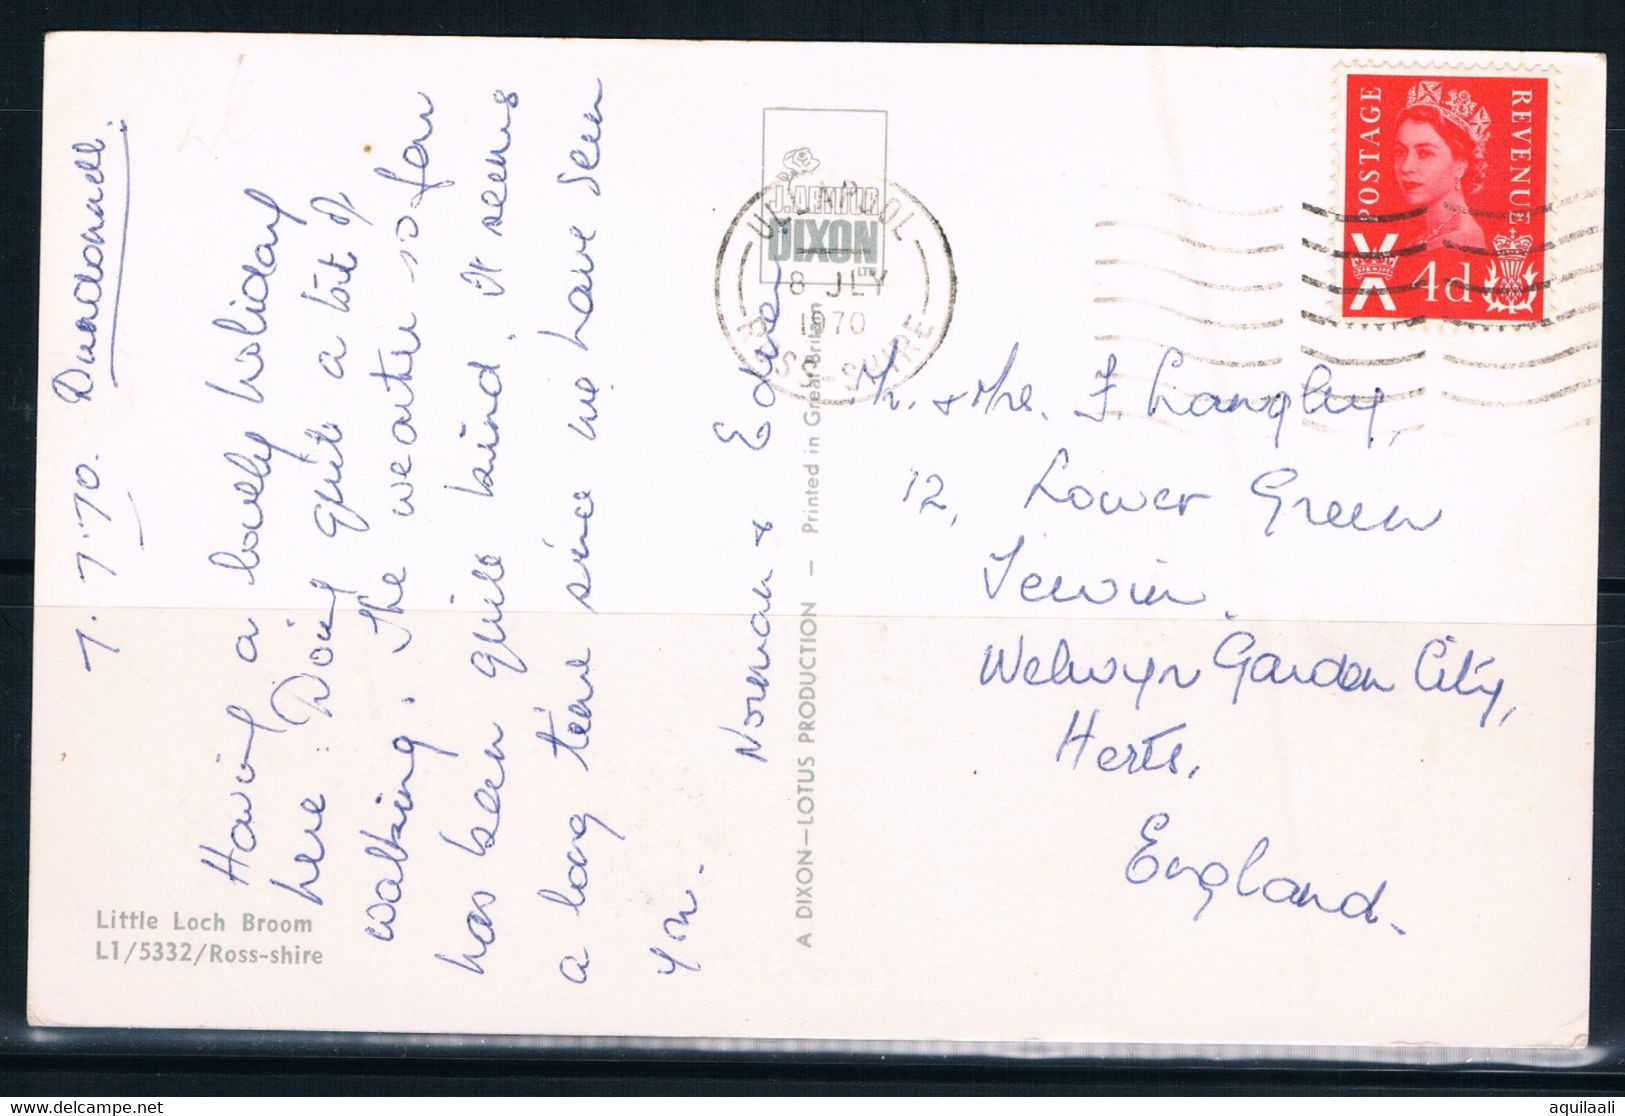 7.7.70. Dundonnell.
Having a lovely holiday
here. Doing quite a lot of
walking. The weather so far
has been quite kind. It seems
a long time since we have seen
you.
Norman &
Little Loch Broom
L1/5332/Ross-shire
A DIXON—LOTUS PRODUCTION — Printed in Great Britain
J. ARTHUR
DIXON
LTD
ULLAPOOL
8 JLY
1970
ROSS-SHIRE
POSTAGE
REVENUE
4d
Mr. & Mrs. F. Langley,
12, Lower Green
Tewin.
Welwyn Garden City,
Herts.
England.
aquilaali